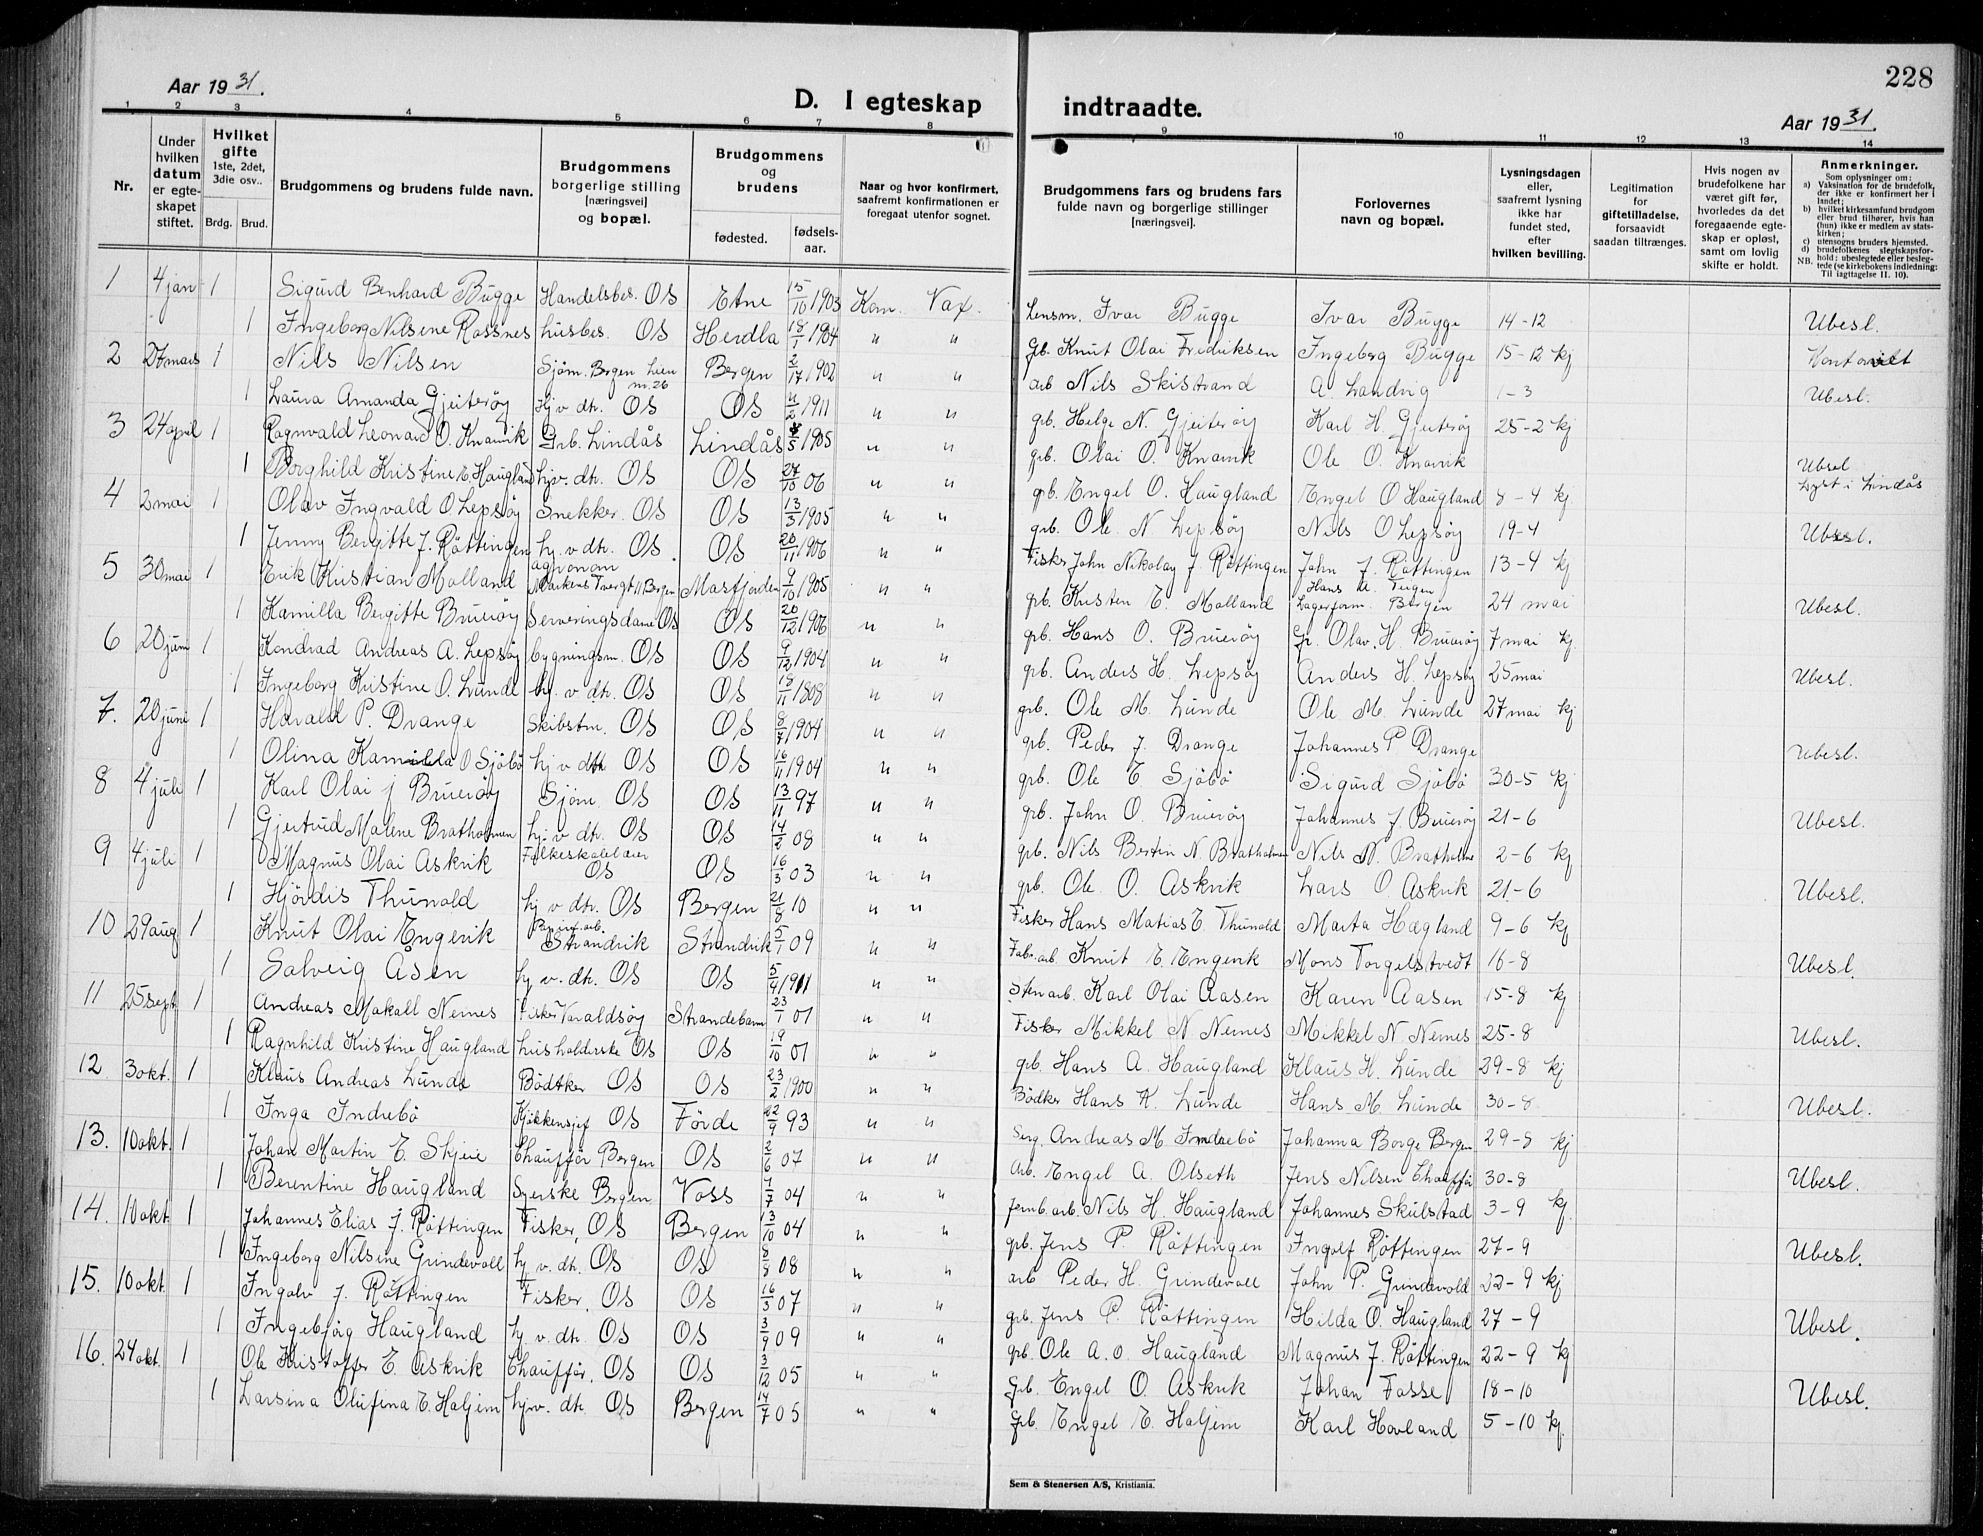 228
Aar 1931.
D. I egteskap indtraadte.
Aar 1931.
1 2 3 4 5 6 7 8 9 10 11 12 13 14
Nr.
Under hvilken datum er egteskapet stiftet.
Hvilket gifte 1ste, 2det, 3die osv..
Brdg. Brud.
Brudgommens og brudens fulde navn.
Brudgommens borgerlige stilling [næringsvei] og bopæl.
Brudgommens og brudens
fødested. fødselsaar.
Naar og hvor konfirmert, saafremt konfirmationen er foregaat utenfor sognet.
Brudgommens fars og brudens fars fulde navn og borgerlige stillinger [næringsvei].
Forlovernes navn og bopæl.
Lysningsdagen eller, saafremt lysning ikke har fundet sted, efter hvilken bevilling.
Legitimation for giftetilladelse, forsaavidt saadan tiltrænges.
Hvis nogen av brudefolkene har været gift før, hvorledes da det foregaaende egteskap er opløst, samt om lovlig skifte er holdt.
Anmerkninger.
Som oplysninger om:
a) Vaksination for de brudefolk, der ikke er konfirmert her i landet;
b) hvilket kirkesamfund brudgom eller brud tilhører, hvis han (hun) ikke er medlem av statskirken;
c) utensogns bruders hjemsted.
d) brudefolkenes slegtskapsforhold; ubeslegtede eller beslegtede (se kirkebokens indledning: Til iagttagelse II. 10).
NB.
1 4 jan 1 Sigurd Benhard Bugge Handelsbes. OS Etne 15/10 1903 Kom. Vax. Lensm. Ivar Bugge Ivar Bugge 14-12 Ubesl.
1 Ingeborg Nilsine Rossnes husbes. OS Herdla 18/1 1904 " " Gb. Knut Olai Fredriksen Ingeborg Bugge 15-12 kj
2 27 mars 1 Nils Nilsen Sjøm. Bergen Bergen 2/17 1902 " " arb Nils Skistrand A. Landvig 1-3 Ubesl.
1 Laura Amanda Gjeiterøy Hj v dtr. OS OS 4/2 1911 " " grb. Helge N. Gjeiterøy Karl H. Gjeiterøy 25-2 kj
3 24 april 1 Ragnvald Leonard O. Knarvik Grb. Lindås Lindås 8/5 1905 " " grb. Olai O. Knarvik Ole O. Knarvik Ubesl.
1 Borghild Kristine E. Haugland hjv. dtr. OS OS 27/10 06 " " grb. Engel O. Haugland Engel O Haugland 8-4 kj Lyst i Lindås
4 2 mai 1 Olav Ingvald O Lepsøy Snekker. OS OS 13/3 1905 " " grb. Ole N. Lepsøy Nils O Lepsøy 19-4 Ubesl.
1 Jenny Bergitte J. Røttingen hj. v dtr. OS. OS 20/11 1906 " " Fisker John Nikolay J. Røttingen John J. Røttingen 13-4 kj
5 30 mai 1 Erik Kristian Molland agronom Markens Tvergt 11 Bergen Masfjorden 9/10 1905 " " grb. Kristen E. Molland Lagerform. Bergen 24 mai Ubesl.
1 Kamilla Bergitte Bruerøy Serveringsdame OS OS 20/12 1906 " " grb. Hans O. Bruerøy Gr. Olav. H. Bruerøy 7 mai kj
6 20 juni 1 Kondrad Andreas A. Lepsøy bygningsm. OS OS 9/12 1904 " " grb. Anders H. Lepsøy Anders H. Lepsøy 25 mai Ubesl.
1 Ingeborg Kristine O. Lunde hj. v dtr. OS OS 18/11 1808 " " grb. Ole M. Lunde Ole M. Lunde 27 mai kj
7. 20 juni 1 Harald P. Drange Skibstm. OS OS 8/7 1904 " " grb. Peder J. Drange Johannes P Drange Ubesl.
1 Olina Kamilda O Sjøbø hj v dtr OS OS 16/11 1904 " " grb. Ole E. Sjøbø Sigurd Sjøbø 30-5 kj
8 4 juli 1 Karl Olai J Bruerøy Sjøm. OS OS 13/11 97 " " grb. John O. Bruerøy Johannes J. Bruerøy 21-6 Ubesl.
1 Gjertrud Malene Bratholmen hj v dtr. OS OS 14/2 08 " " grb. Nils Bertin N. Bratholmen Nils N. Bratholm 2-6 kj
9 4 juli 1 Magnus Olai Askvik Folkeskolelærer OS OS 16/3 03 " " grb. Ole O. Askvik Lars O Askvik 21-6 Ubesl.
1 Hjørdis Thunold hj v dtr. OS Bergen 21/8 10 " " Fisker Hans Matias E. Thunold Marta Hagland 9-6 kj
10 29 aug 1 Knut Olai Engevik Papirarb. Strandvik Strandvik 5/1 09 " " Fabr. arb. Knut E. Engevik Mons Torgelstvedt 16-8 Ubesl.
1 Solveig Åsen hj v. dtr. OS OS 5/4 1911 " " Stenarb. Karl Olai Aasen Karen Aasen 15-8 kj
11 25 sept 1 Andreas Makall Nernes Fisker Varaldsøy Strandebarm 23/1 01 " " Fisker Mikkel N Nernes Mikkel N. Nernes 25-8 Ubesl.
1 Ragnhild Kristine Haugland husholderske OS OS 19/10 01 " " grb. Hans A. Haugland Klaus H. Lunde 29-8 kj
12. 3 okt. 1 Klaus Andreas Lunde Bødtker OS OS 23/2 1900 " " Bødker Hans K. Lunde Hans M. Lunde 30-8 Ubesl.
1 Inga Indrebø Kjøkkensjef OS Førde 22/9 93 " " Serg. Andreas M. Indrebø Johanna Borge Bergen 29-8 kj
13. 10 okt. 1 Johan Martin E. Skjeie Chauffør Bergen OS 2/6 07 " " Arb. Engel A. Olseth Jens Nilsen Chauffør 30-8 Ubesl.
1 Berentine Haugland Syerske Bergen Voss 1/7 04 " " Jernb. arb. Nils H. Haugland Johannes Skulstad 3-9 kj.
14. 10 okt. 1 Johannes Elias J. Røttingen Fisker, OS Bergen 3/10 04 " " grb. Jens P. Røttingen Ingolf Røttingen 27-9 Ubesl.
1 Ingeborg Nilsine Grindevoll hj. v. dtr. OS OS 8/8 08 " " arb Peder H. Grindevoll John P. Grindevold 22-9 kj
15. 10 okt. 1 Ingolv J. Røttingen Fisker, OS OS 16/3 07 " " grb. Jens P. Røttingen Hilda O. Haugland 27-9 Ubesl.
1 Ingebjørg Haugland hj v. dtr. OS OS 3/9 09 " " grb. Ole A. O. Haugland Magnus J. Røttingen 22-9 kj
16. 24 okt. 1 Ole Kristoffer E. Askvik Chauffør. OS OS 3/12 05 " " Grb. Engel O. Askvik Johan Fosse 18-10 Ubesl.
1 Larsina Olufina E. Haljem hjv. dtr. OS Bergen 14/7 05 " " Grb. Engel E. Haljem Karl Hovland 5-10 kj.
Sem & Stenersen A/S, Kristiania.